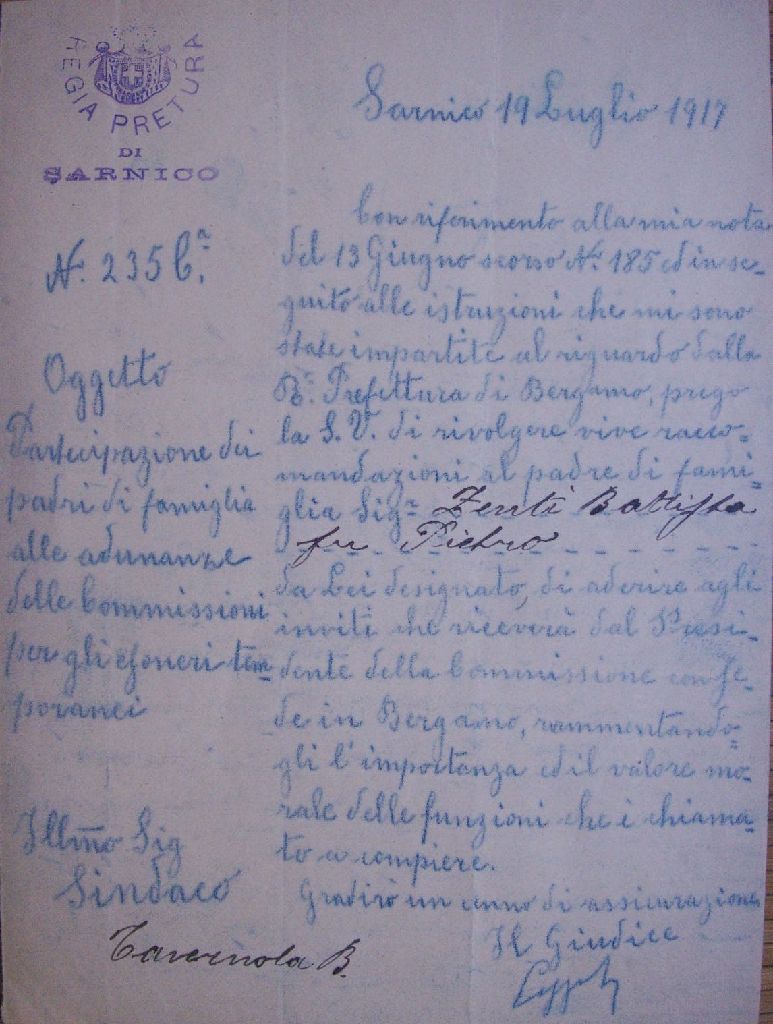 REGIA PRETURA
DI
SARNICO
Sarnico 19 Luglio 1917
N. 235 C.ª
Oggetto
Partecipazione dei
padri di famiglia
alle adunanze
delle Commissioni
per gli esoneri tem=
poranei
Illmo Sig
Sindaco
Tavernola B.
Con riferimento alla mia nota
del 13 Giugno scorso N. 185 ed in se=
guito alle istruzioni che mi sono
state impartite al riguardo dalla
R. Prefettura di Bergamo, prego
la S. V. di rivolgere vive racco=
mandazioni al padre di fami=
glia Sig. Zenti Battista
fu Pietro
da Lei designato, di aderire agli
inviti che riceverà dal Presi=
dente della Commissione con se=
de in Bergamo, rammentando=
gli l'importanza ed il valore mo=
rale delle funzioni che è chiama=
to a compiere.
Gradirò un cenno di assicurazione
Il Giudice